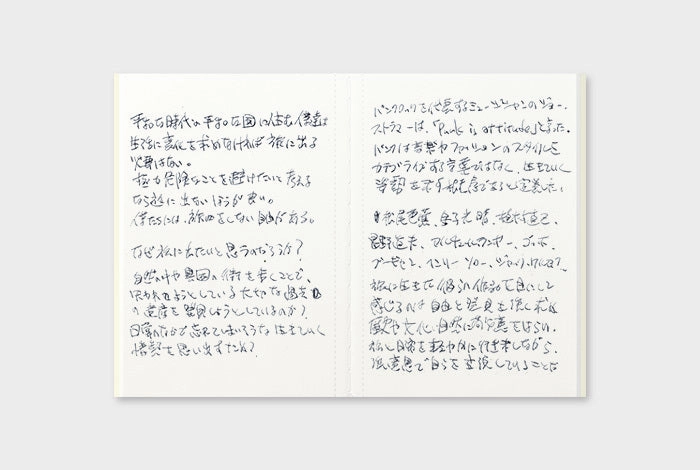 平和な時代の平和な国に住む僕達は
生活に変化を求めなければ旅に出る
必要はない。
極力危険なことを避けたいと考える
なら旅に出ないほうが良い。
僕たちには、旅をしない自由がある。
なぜ旅に出たいと思うのだろうか?
自然の中や異国の街を歩くことで、
失われようとしている大切な過去
の遺産を発見しようとしているのか?
日常のなかで忘れてしまいそうな生きていく
情熱を思い出すため?
パンクロックを代表するミュージシャンのジョー・
ストラマーは、「Punk is attitude」と言った。
パンクは音楽やファッションのスタイルを
カテゴライズする言葉ではなく、生きていく
姿勢を示す態度であると定義した。
松尾芭蕉、金子光晴、植村直己、
星野道夫、ヴィム・ヴェンダース、ゴッホ、
ゴーギャン、ヘンリー・ソロー、ジャック・ケルアック。
旅に生きた彼らの作品を目にして
感じるのは自由と発見を強く求め
歴史や文化、自然に敬意をはらい、
旅と日常を軽やかに行き来しながら、
強い意思で自らを表現していることだ